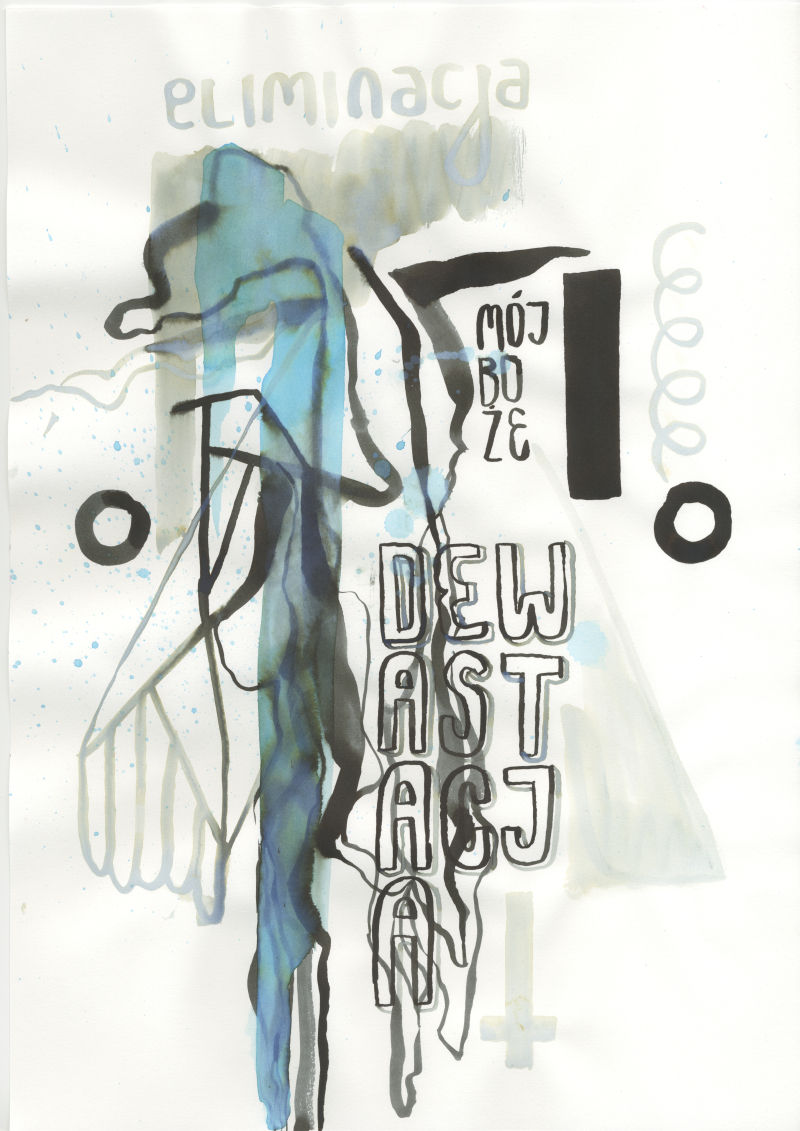 eLiminacja
MÓJ
BO
ŻE
DEW
AST
ACJ
A